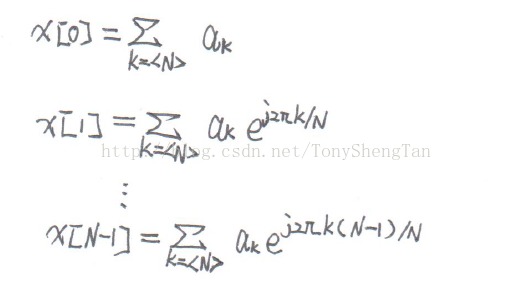 x[0] = ∑ k=<N> aₖ
x[1] = ∑ k=<N> aₖ e^{j2πk/N}
http://blog.csdn.net/TonyShengTan
⋮
x[N-1] = ∑ k=<N> aₖ e^{j2πk(N-1)/N}